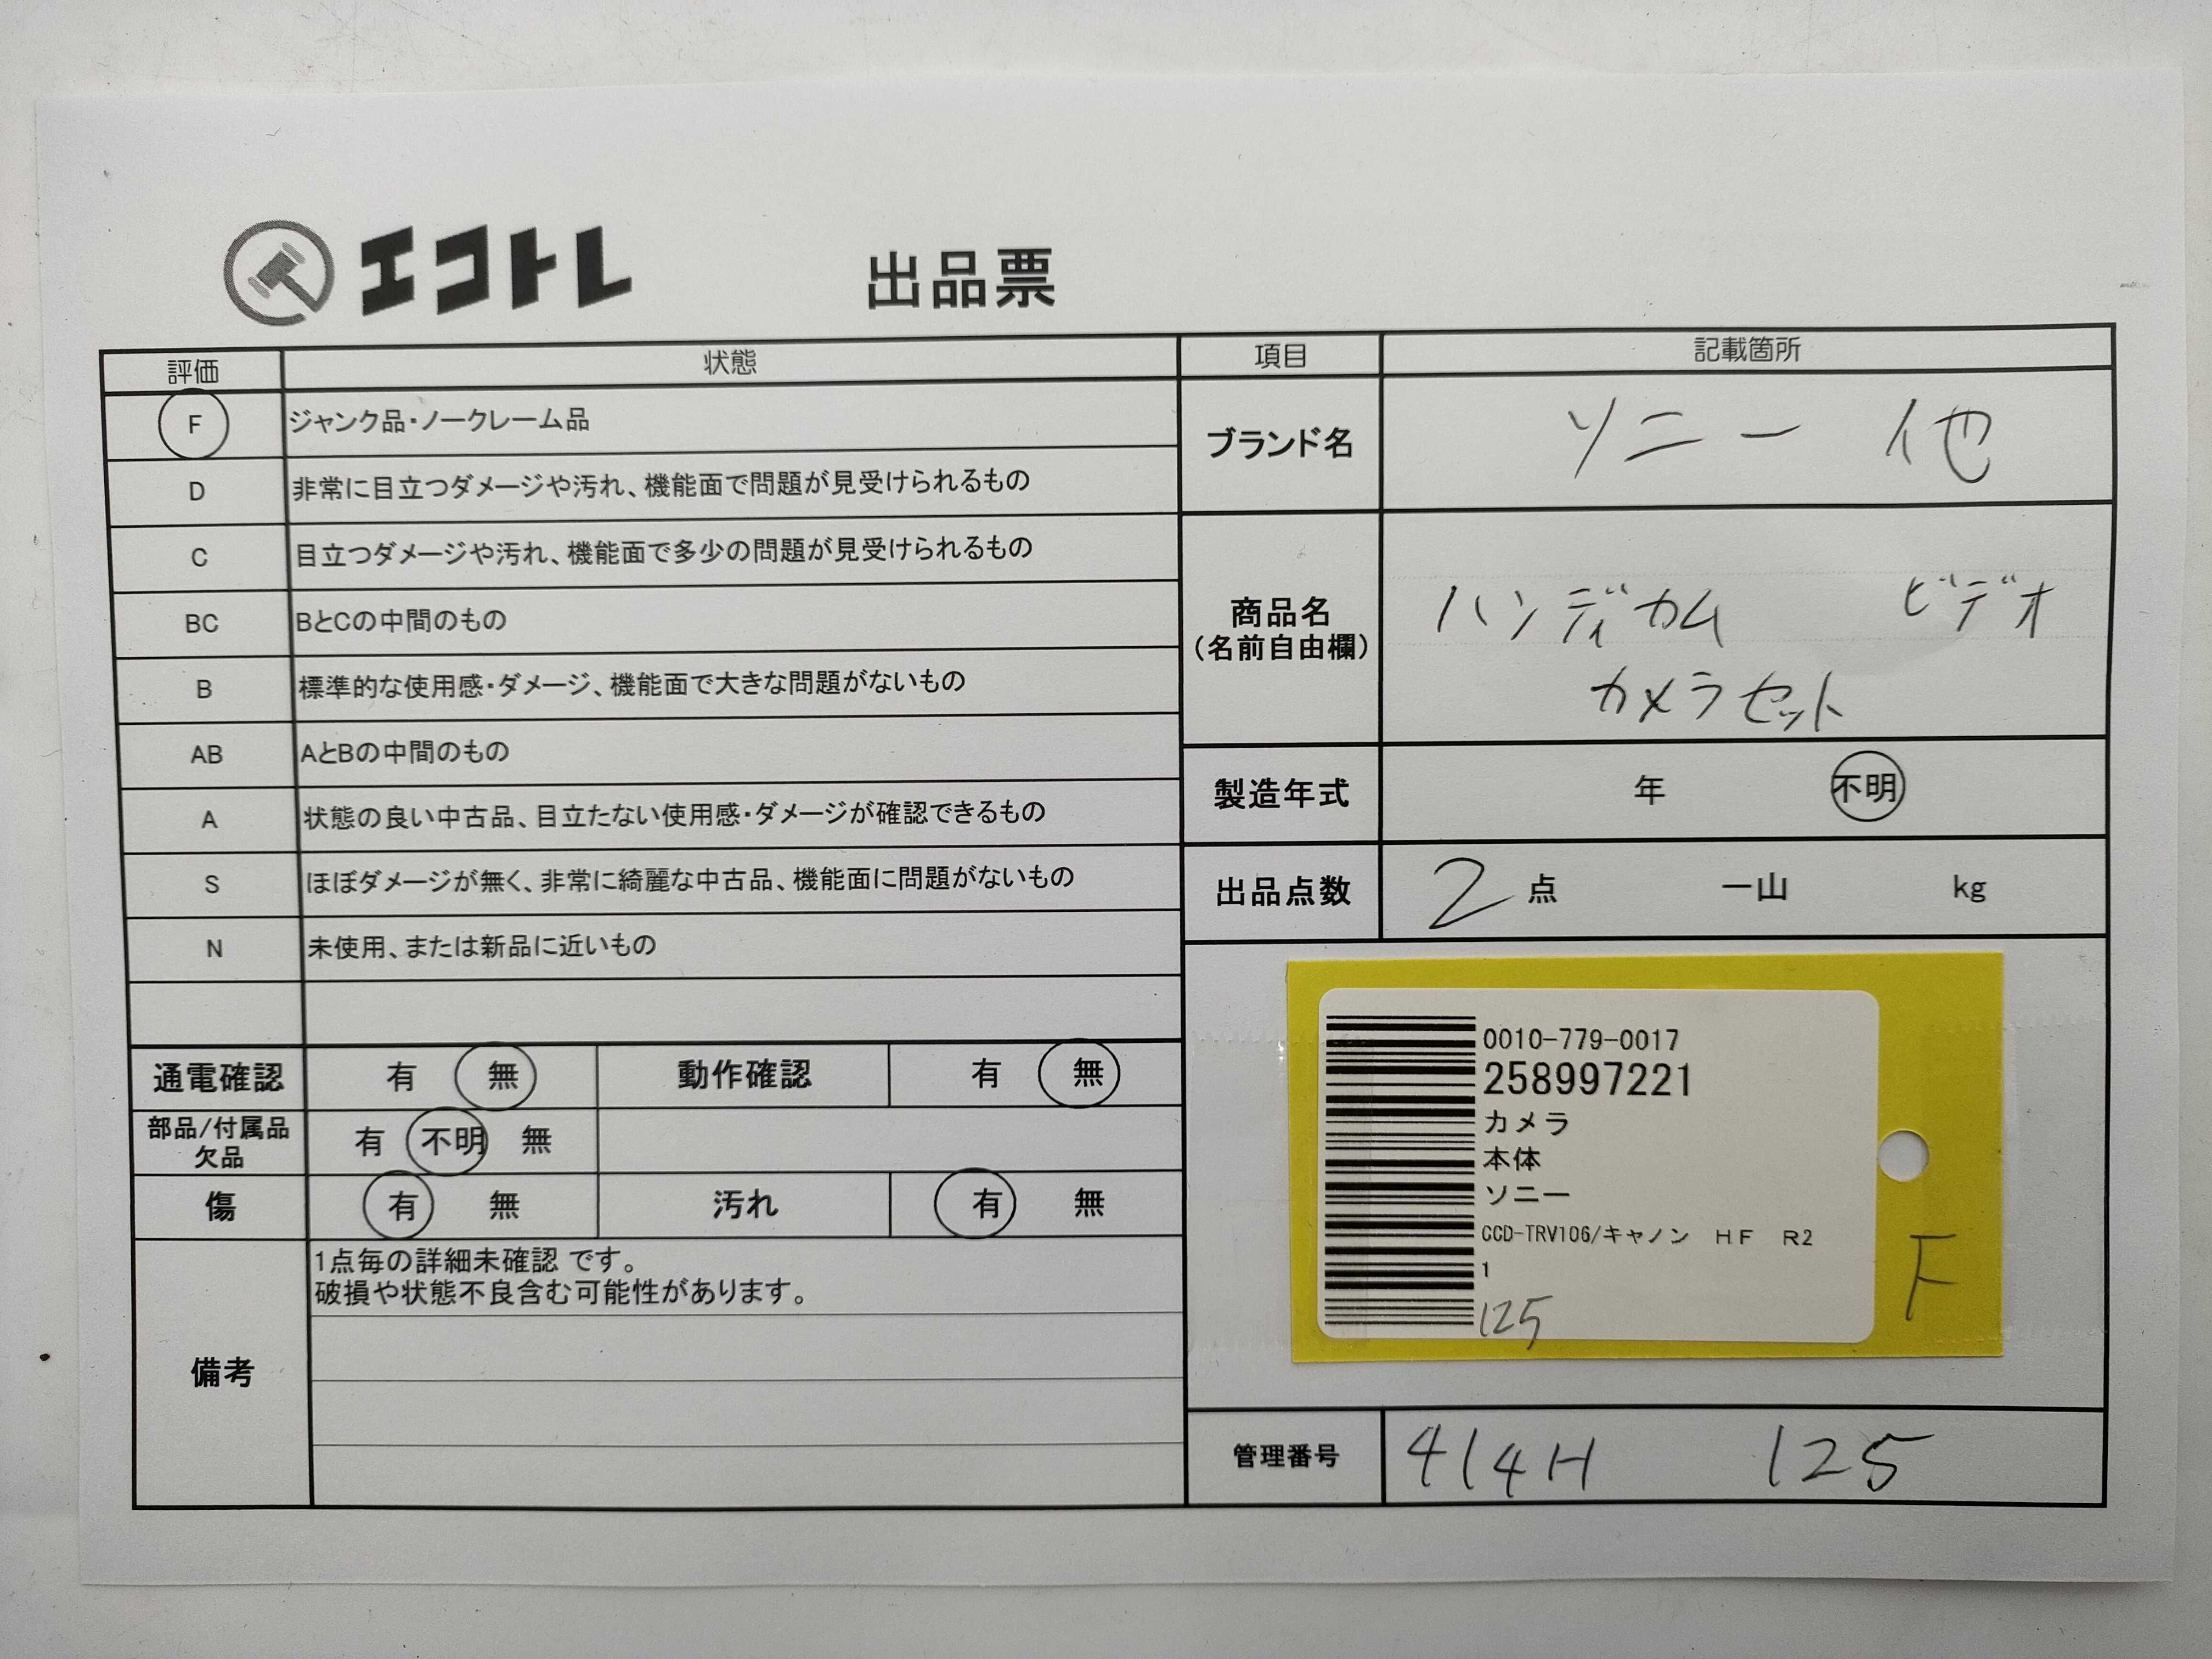 エコトレ
出品票
評価 状態
F ジャンク品・ノークレーム品
D 非常に目立つダメージや汚れ、機能面で問題が見受けられるもの
C 目立つダメージや汚れ、機能面で多少の問題が見受けられるもの
BC BとCの中間のもの
B 標準的な使用感・ダメージ、機能面で大きな問題がないもの
AB AとBの中間のもの
A 状態の良い中古品、目立たない使用感・ダメージが確認できるもの
S ほぼダメージが無く、非常に綺麗な中古品、機能面に問題がないもの
N 未使用、または新品に近いもの
通電確認 有 無 動作確認 有 無
部品/付属品
欠品
有 不明 無
傷 有 無 汚れ 有 無
備考
1点毎の詳細未確認 です。
破損や状態不良含む可能性があります。
項目 記載箇所
ブランド名 ソニー 他
商品名
(名前自由欄)
ハンディカム ビデオ
カメラセット
製造年式 年 不明
出品点数 2 点 一山 kg
0010-779-0017
258997221
カメラ
本体
ソニー
CCD-TRV106/キャノン HF R2
1
125
F
管理番号 414H 125